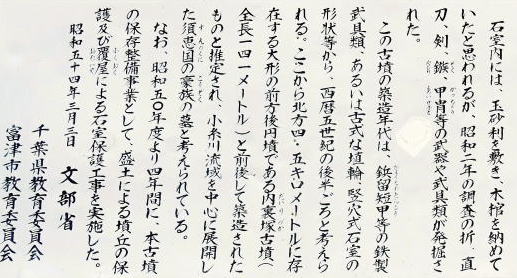 石室内には、玉砂利を敷き、木棺を納めて
いたと思われるが、昭和二年の調査の折、直
刀、剣、鏃、甲冑等の武器や武具類が発掘さ
れた。
この古墳の築造年代は、鋲留短甲等の鉄製
武具類、あるいは古式な埴輪、竪穴式石室の
形状等から、西暦五世紀の後半ごろと考えら
れる。ここから北方四・五キロメートルに存
在する大形の前方後円墳である内裏塚古墳(
全長一四一メートル)と前後して築造された
ものと推定され、小糸川流域を中心に展開し
た須恵国の豪族の墓と考えられている。
なお、昭和五〇年度より四年間に、本古墳
の保存整備事業として、盛土による墳丘の保
護及び覆屋による石室保護工事を実施した。
昭和五十四年三月三日
文部省
千葉県教育委員会
富津市教育委員会